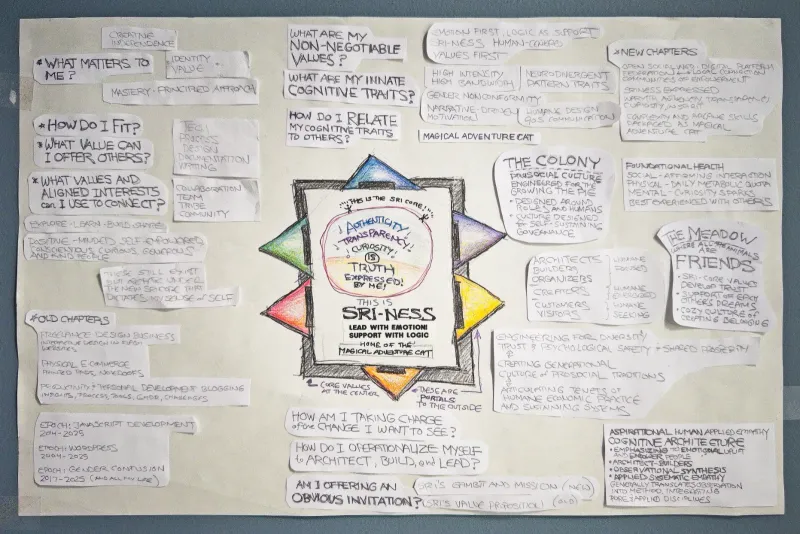 CREATIVE
INDEPENDENCE
* WHAT MATTERS
TO ME?
IDENTITY
VALUE
MASTERY-PRINCIPLED APPROACH
* HOW DO I FIT?
* WHAT VALUE CAN
I OFFER OTHERS?
* WHAT VALUES AND
ALIGNED INTERESTS
CAN I USE TO CONNECT?
TECH
PROCESS
DESIGN
DOCUMENTATION
COLLABORATION
TEAM
TRIBE
COMMUNITY
EXPLORE - LEARN - BUILD - SHARE
POSITIVE-MINDED, SELF EMPOWERED
CONSCIENTIOUS, CURIOUS, GENEROUS
AND KIND PEOPLE
THESE STILL EXIST
MY SENSE OF SELF
* OLD CHAPTERS
FREELANCE DESIGN BUSINESS
PHYSICAL E-COMMERCE
PRODUCTIVITY + PERSONAL DEVELOPMENT BLOGGING
EPOCH: JAVASCRIPT DEVELOPMENT
2014-2025
EPOCH: WORDPRESS
2004-2025
EPOCH: GENDER CONFUSION
2017-2025
WHAT ARE MY
NON-NEGOTIABLE
VALUES?
WHAT ARE MY INNATE
COGNITIVE TRAITS?
HOW DO I RELATE
MY COGNITIVE TRAITS
TO OTHERS?
EMOTION FIRST, LOGIC AS SUPPORT
SRI-NESS HUMAN-CENTERED
VALUES FIRST
HIGH INTENSITY
HIGH BANDWIDTH
NEURO-DIVERGENT
PATTERN TRAITS
GENDER NONCONFORMITY
NARRATIVE-DRIVEN
MOTIVATION
HUMANE DESIGN
MAGICAL ADVENTURE CAT
THIS IS THE SRI CORE!
AUTHENTICITY
TRANSPARENCY
CURIOSITY
IS
TRUTH
EXPRESSED
BY ME!
THIS IS
SRI-NESS
LEAD WITH EMOTION!
SUPPORT WITH LOGIC
HOME OF THE
MAGICAL ADVENTURE CAT
CORE VALUES
AT THE CENTER
THESE ARE
PORTALS
TO THE OUTSIDE
HOW AM I TAKING CHARGE
OF THE CHANGE I WANT TO SEE?
HOW DO I OPERATIONALIZE MYSELF
TO ARCHITECT, BUILD, AND LEAD?
AM I OFFERING AN
OBVIOUS INVITATION?
SRI'S GAMBIT AND MISSION (NEW)
SRI'S VALUE PROPOSITION (OLD)
* NEW CHAPTERS
MAGICAL
ADVENTURE CAT
FOUNDATIONAL HEALTH
SOCIAL - AFFIRMING INTERACTION
PHYSICAL - DAILY METABOLIC QUOTA
MENTAL - CURIOSITY SPARKS
BEST EXPERIENCED WITH OTHERS
THE COLONY
PROSOCIAL CULTURE
ENGINEERED FOR THE
GROWING THE PIE
• DESIGNED AROUND
ROLES AS HUMANS
• CULTURE DESIGNED
BY SELF-SUSTAINING
GOVERNANCE
ARCHITECTS
BUILDERS
ORGANIZERS
CREATORS
CUSTOMERS
VISITORS
HUMANE
HUMANE
ENERGIZED
HUMANE
SEEKING
THE MEADOW
WHERE ALL THE ANIMALS
ARE
FRIENDS
• SRI-CORE VALUES
DEVELOP TRUST
• SUPPORT OF EACH
OTHERS DREAMS
• COZY CULTURE OF
CREATING BELONGING
ENGINEERING FOR DIVERSITY
TRUST + PSYCHOLOGICAL SAFETY + SHARED PROSPERITY
CREATING GENERATIONAL
CULTURE OF PROSOCIAL TRADITIONS
ARTICULATING TENETS OF
HUMANE ECONOMIC PRACTICE
AND SUSTAINING SYSTEMS
ASPIRATIONAL HUMAN APPLIED EMPATHY
COGNITIVE ARCHITECTURE
• EMPHASIZING EMOTIONAL UPLIFT
AND EMPOWER PEOPLE
• ARCHITECT-BUILDERS
• OBSERVATIONAL SYNTHESIS
• APPLIED SYSTEMATIC EMPATHY
GENERALLY TRANSLATES OBSERVATION
INTO METHOD, INTEGRATING
PURE + APPLIED DISCIPLINES